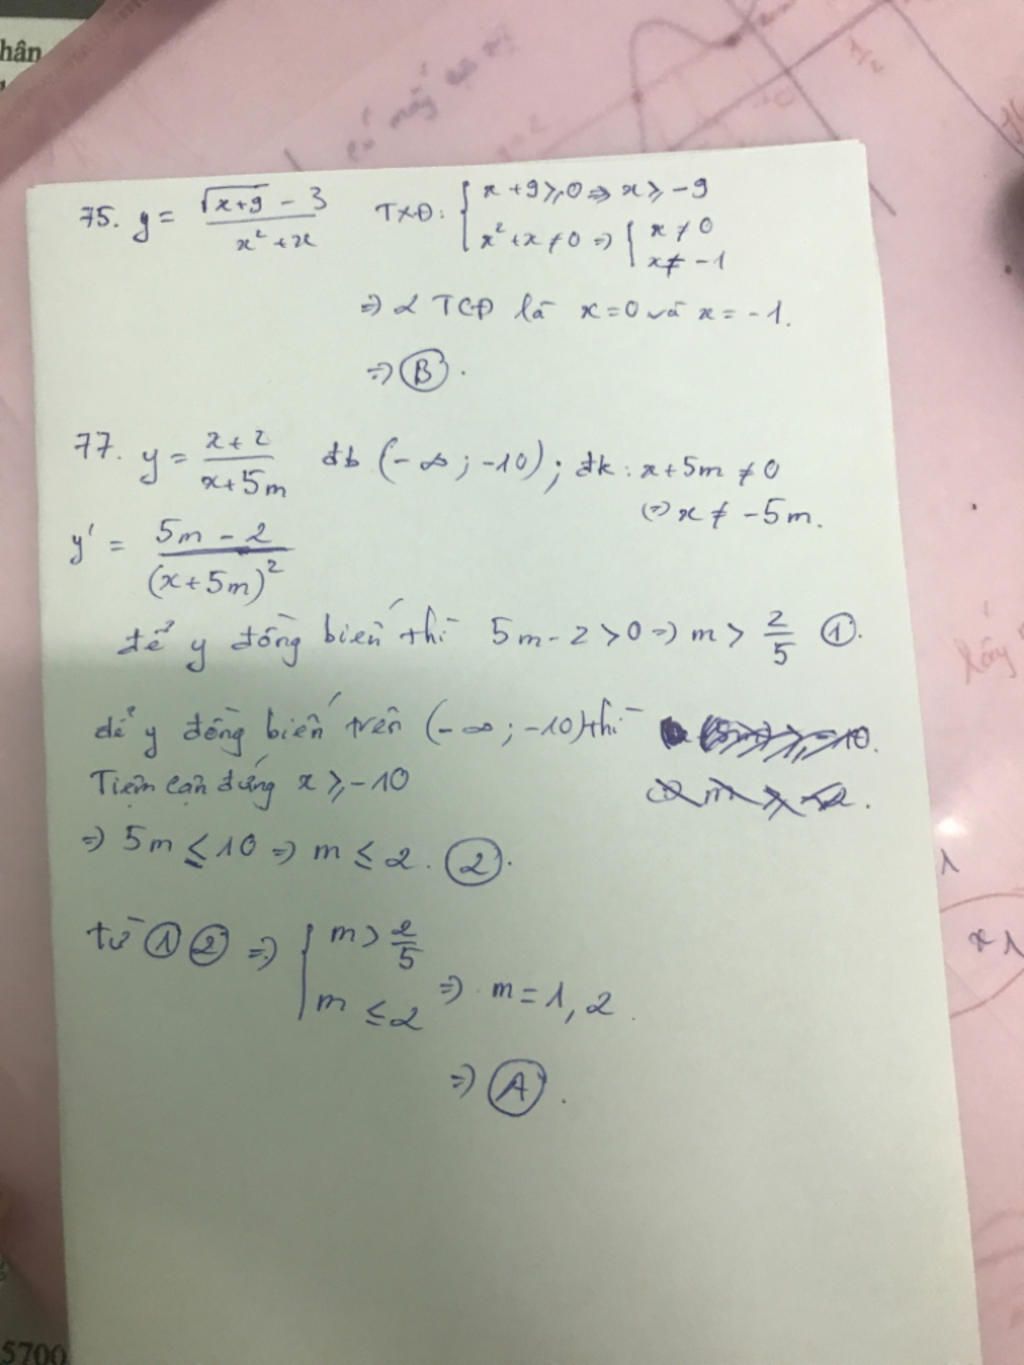 hân
75. y = (√(x+9) - 3)/(x² + x) TXĐ: { x + 9 ⩾ 0 => x ⩾ -9
x² + x ≠ 0 => { x ≠ 0
x ≠ -1
=> 2 TCĐ là x = 0 và x = -1.
=> Ⓑ.
77. y = (x + 2)/(x + 5m) đb (-∞; -10); đk: x + 5m ≠ 0
<=> x ≠ -5m.
y' = (5m - 2)/(x + 5m)²
để y đồng biến thì 5m - 2 > 0 => m > 2/5 ①.
để y đồng biến trên (-∞; -10) thì
Tiệm cận đứng x ⩾ -10
=> 5m ≤ 10 => m ≤ 2. ②.
từ ① ② => { m > 2/5
m ≤ 2 => m = 1, 2.
=> Ⓐ.
5700